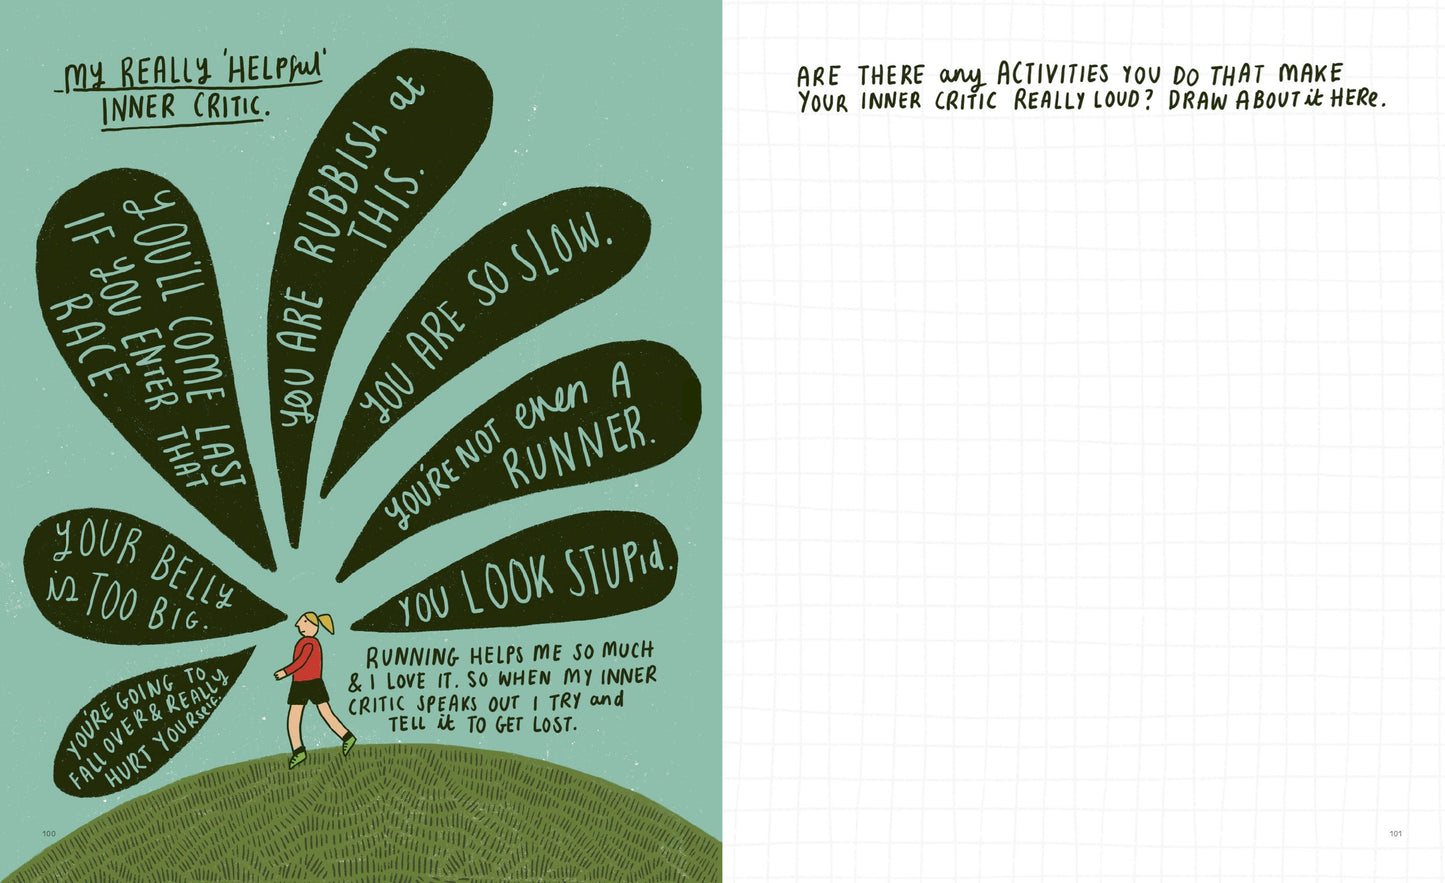 MY REALLY 'HELPful'
INNER CRITIC.
YOU'LL COME LAST
IF YOU ENTER THAT
RACE.
YOU ARE RUBBISH at
THIS.
YOU ARE SO SLOW.
YOU'RE NOT even A
RUNNER.
YOU LOOK STUPid.
YOUR BELLY
is TOO BIG.
YOU'RE GOING TO
FALL OVER & REALLY
HURT YOURSelf.
RUNNING HELPS ME SO MUCH
& I LOVE IT. SO WHEN MY INNER
CRITIC SPEAKS OUT I TRY and
TELL it TO GET LOST.
100
ARE THERE any ACTIVITIES YOU DO THAT MAKE
YOUR INNER CRITIC REALLY LOUD? DRAW ABOUT it HERe.
101